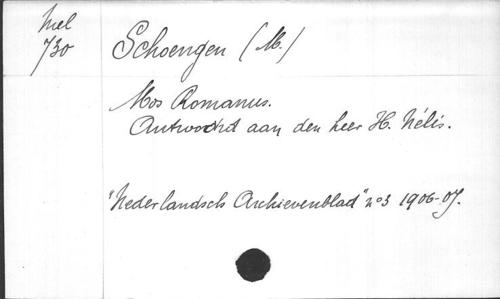 Mél
730
Schoengen (M.)
Mos Romanus.
Antwoord aan den heer H. Nélis.
"Nederlandsch Archievenblad" nº 3 1906-07.